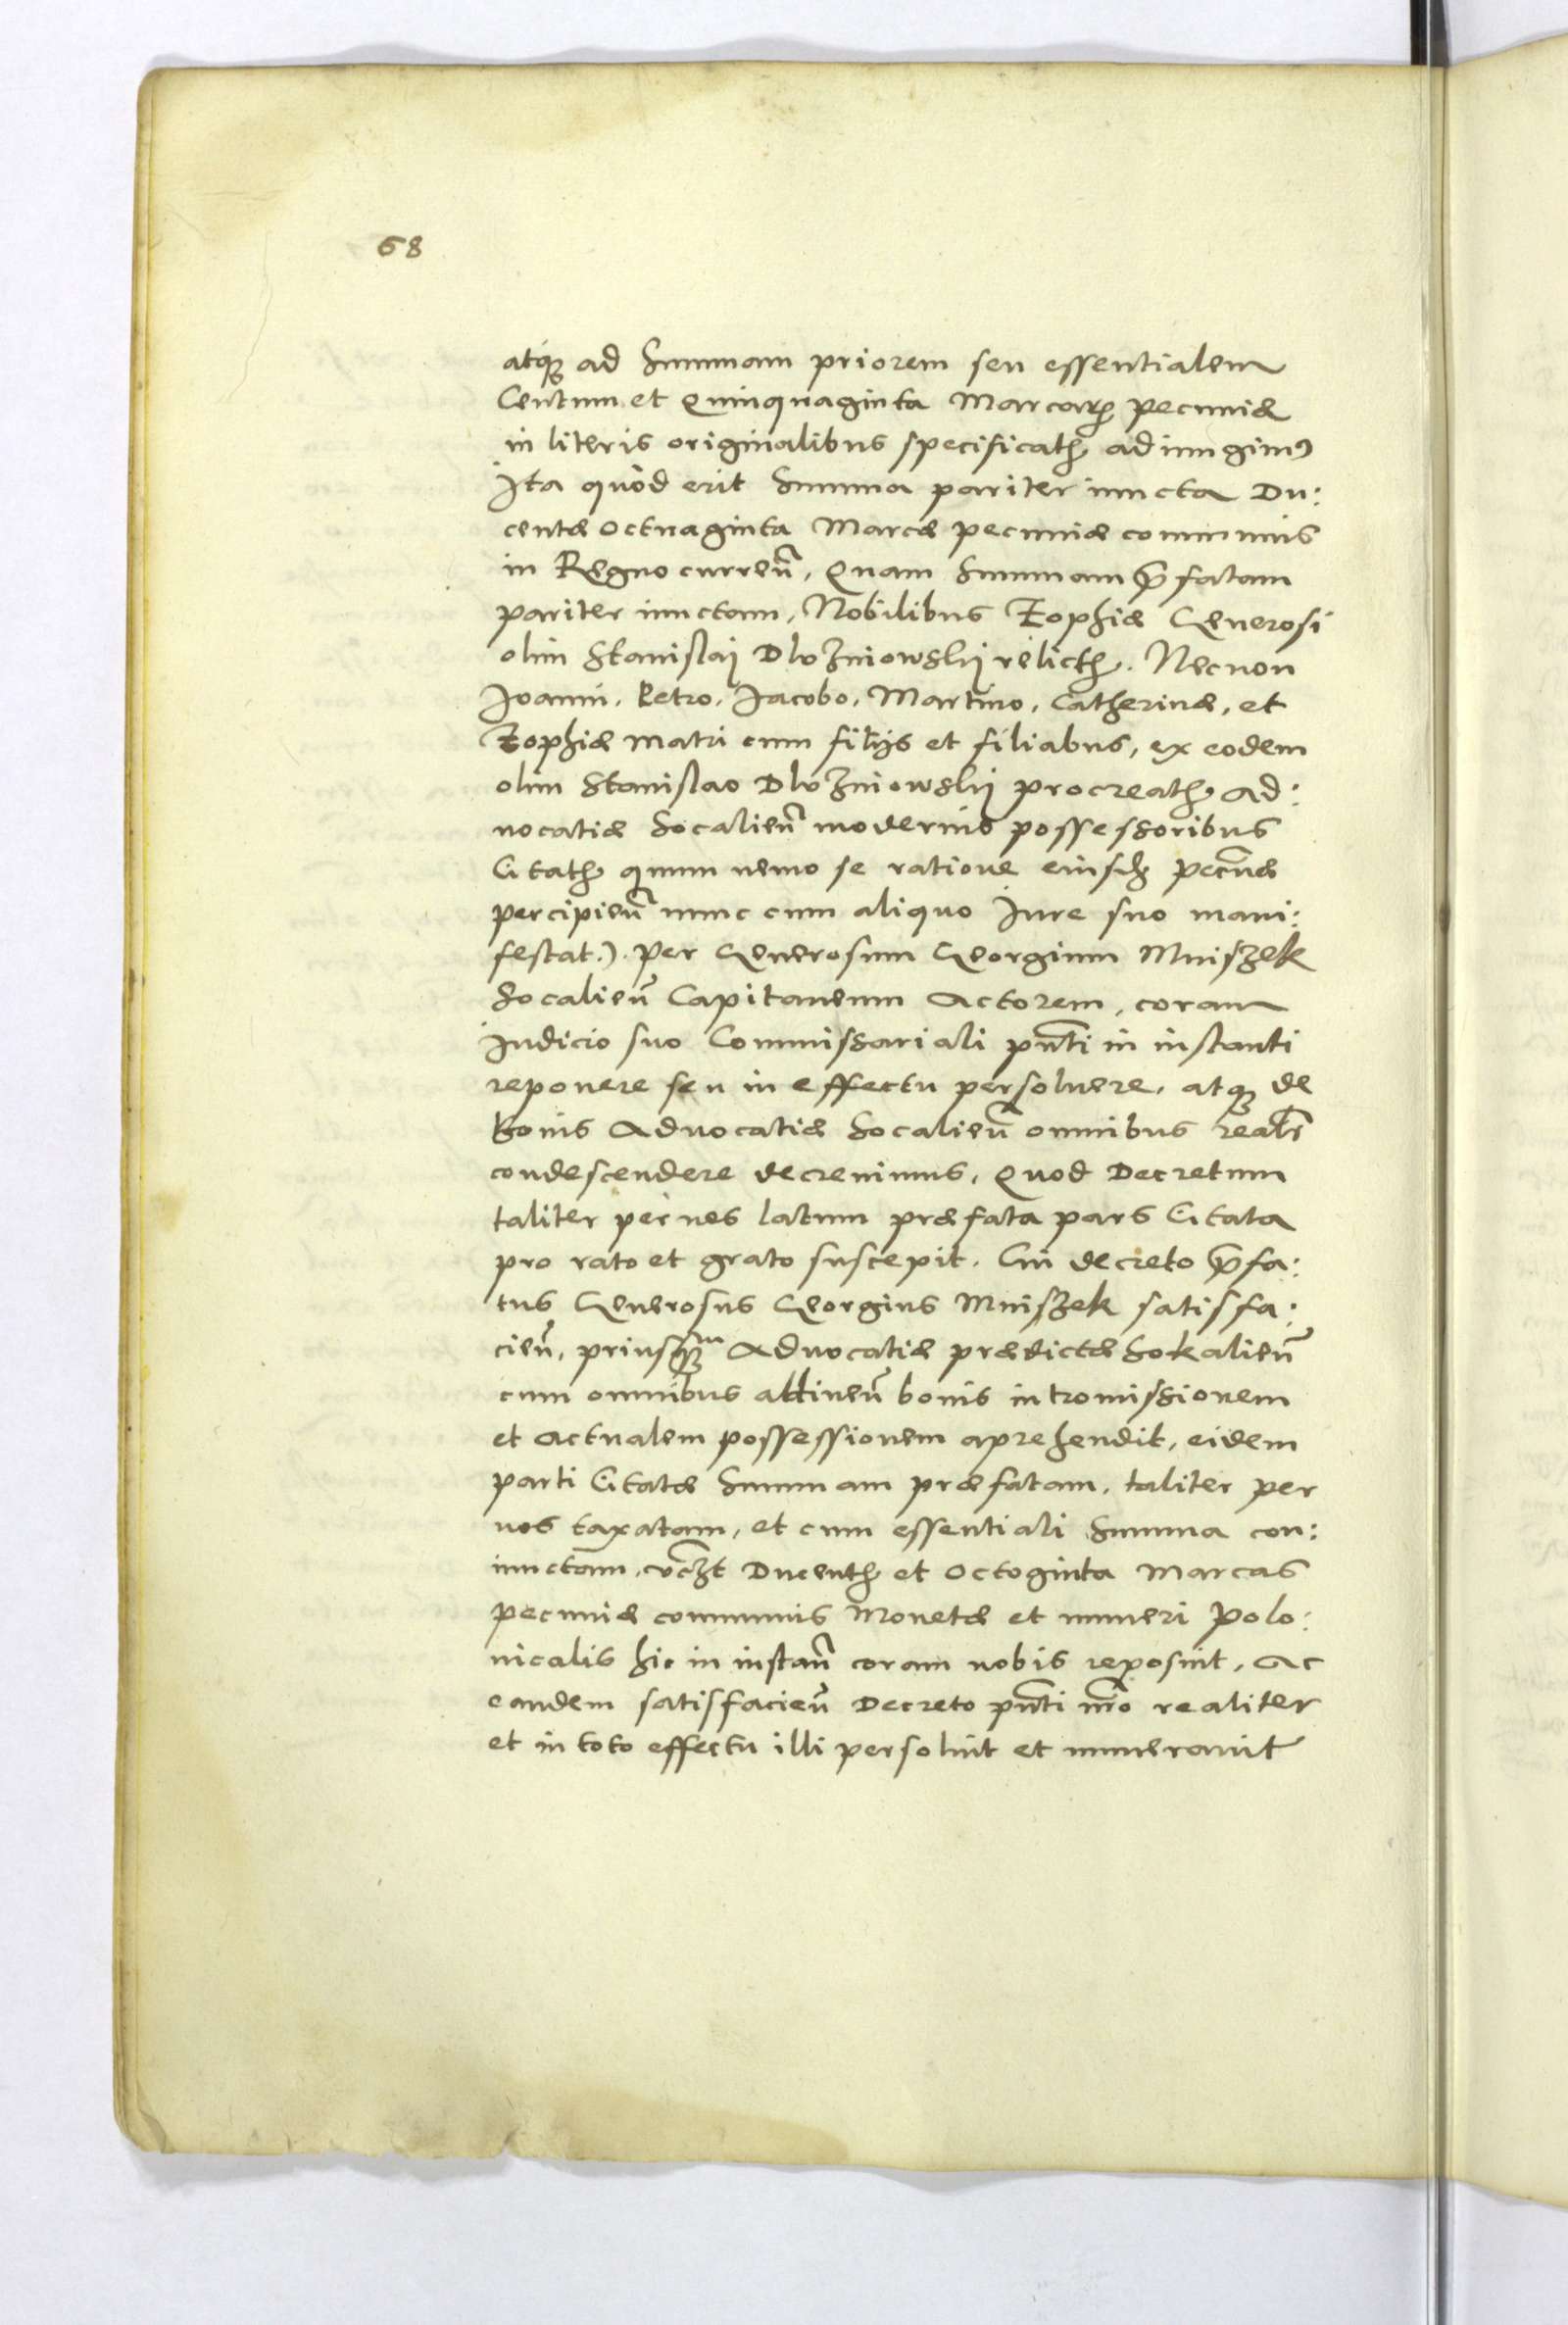 68
atq; ad Summam priorem seu essentialem
Centum et Quinquaginta Marcarꝝ pecuniæ
in literis originalibus specificatħ adiungimꝰ
Ita quòd erit Summa pariter iuncta Du:
centæ Octuaginta Marcæ pecuniæ communis
in Regno curreñ, Quam Summam p̃fatam
pariter iunctam, Nobilibus Zophiæ Generosi
olim Stanislai Dlużniowskij relictħ. Necnon
Joanni, Petro, Jacobo, Martino, Catherinæ, et
Zophiæ matri cum filijs et filiabus, ex eodem
olim Stanislao Dlużniowskij procreatħ Ad:
uocatiæ Socalieñ modernis possessoribus
Citatħ quum nemo se ratione eiusdꝫ pecũæ
percipieñ nunc cum aliquo Iure suo mani:
festat.) per Generosum Georgium Mniszek
Socalieñ Capitaneum Actorem, coram
Iudicio suo Commissariali pñti in instanti
reponere seu in effectu persoluere, atq; de
bonis Aduocatiæ Socalieñ omnibus realr̃
condescendere decreuimus, Quod Decretum
taliter per nos latum præfata pars Citata
pro rato et grato suscepit. Cui decreto p̃fa:
tus Generosus Georgius Mniszek satisfa:
cieñ, priusqꝫm Aduocatiæ prædictæ Sokalieñ
cum omnibus attineñ bonis intromissionem
et Actualem possessionem aprehendit, eidem
parti Citatæ Summam præfatam, taliter per
nos taxatam, et cum essentiali Summa con:
iunctam, vcꝫt Ducentħ et Octoginta Marcas
pecuniæ communis Monetæ et numeri Polo:
nicalis hic in instañ coram nobis reposuit, Ac
eandem satisfacieñ Decreto pñti nr̃o realiter
et in toto effectu illi persoluit et numerauit